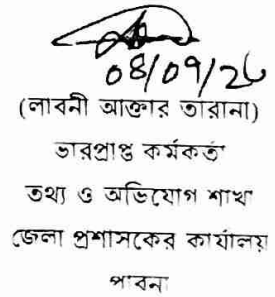 ০৪/০৭/২৬
(লাবনী আক্তার তারানা)
ভারপ্রাপ্ত কর্মকর্তা
তথ্য ও অভিযোগ শাখা
জেলা প্রশাসকের কার্যালয়
পাবনা